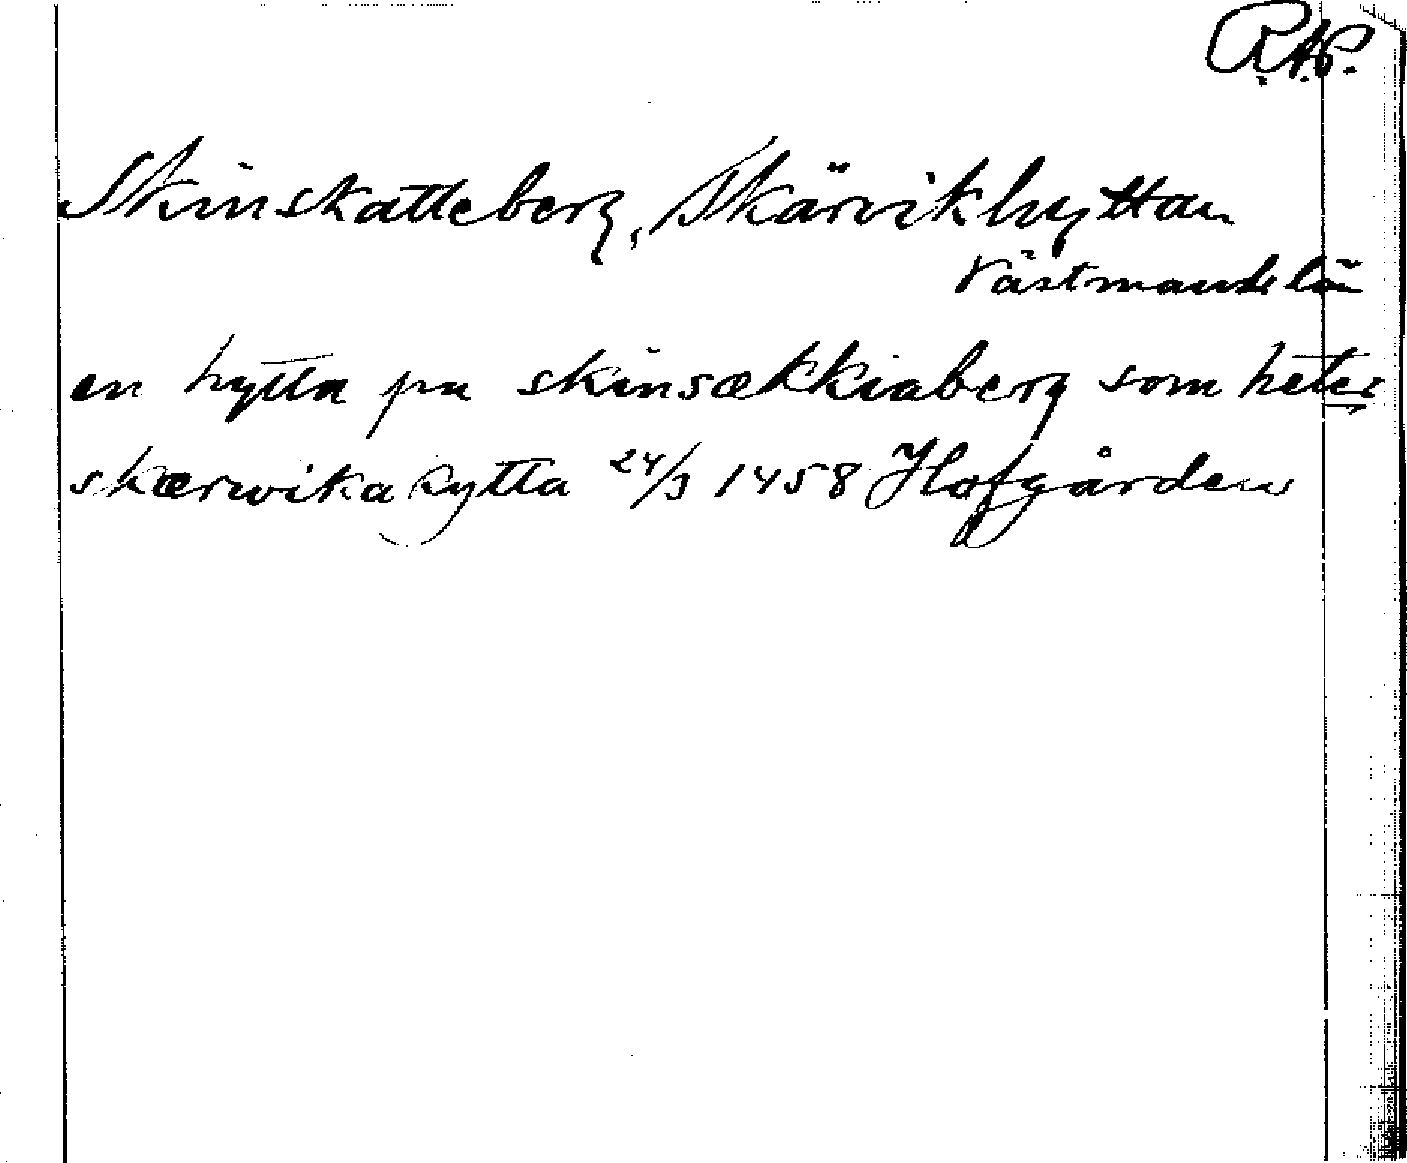 R.A.P.
Skinskatteberg, Skärvikhyttan
Västmanl. län
en hytta pa skinsækkiaberg som heter
skærwika hytta 24/3 1458 Hofgården